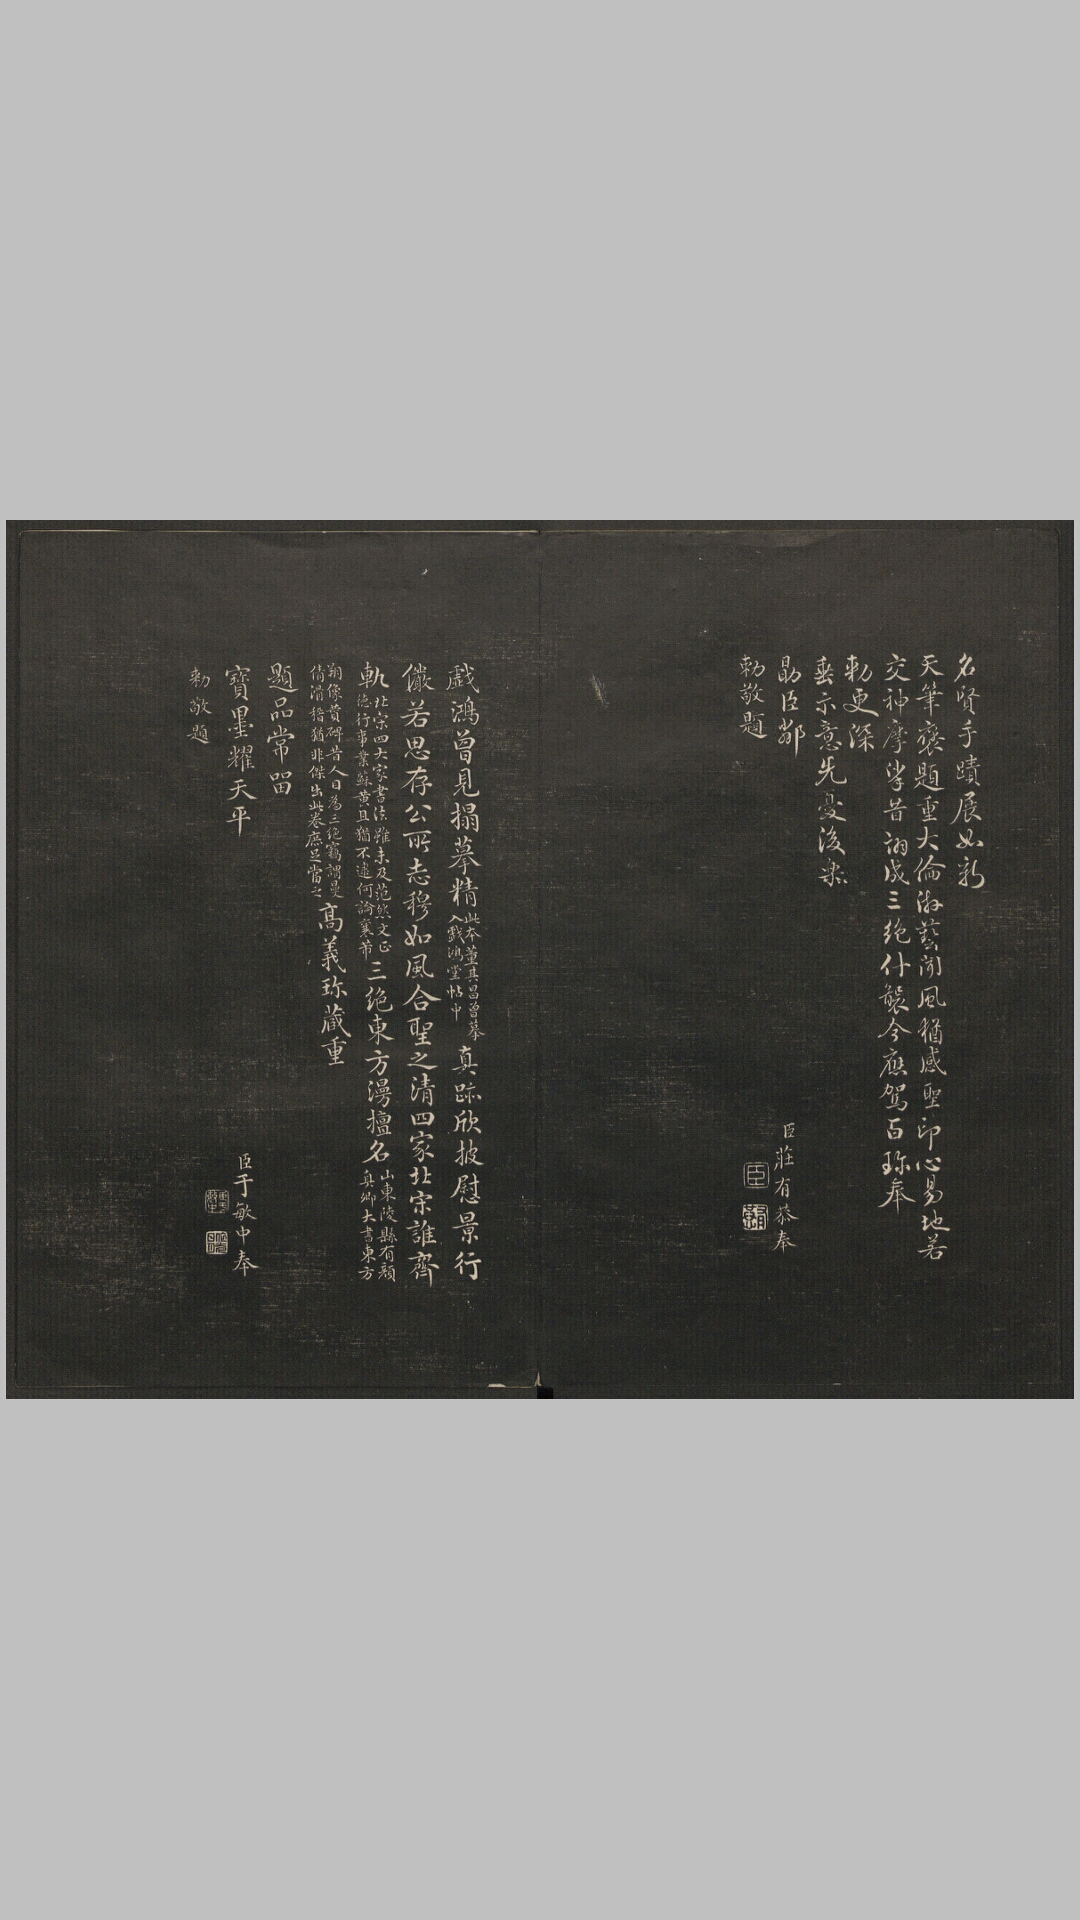 名賢手蹟展如新
天筆褒題重大倫游藝聞風猶感聖印心易地若
交神摩挲昔詡成三絕什襲今應駕百珎奉
勅更深
垂示意先憂後樂
勗臣鄰
臣莊有恭奉
勅敬題
戲鴻曾見搨摹精
此本董其昌曾摹
入戲鴻堂帖中
真跡欣披慰景行
儼若思存公所志穆如風合聖之清四家北宋誰齊
軌
北宋四大家書法雖未及范然文正
德行事業蘇黃且猶不逮何論襄芾
三絕東方漫擅名
山東陵縣有顏
真卿大書東方
朔像贊碑昔人目為三絕竊謂曼
倩滑稽猶非傑出此卷庶足當之
高義珎藏重
題品常留
寶墨耀天平
臣于敏中奉
勅敬題